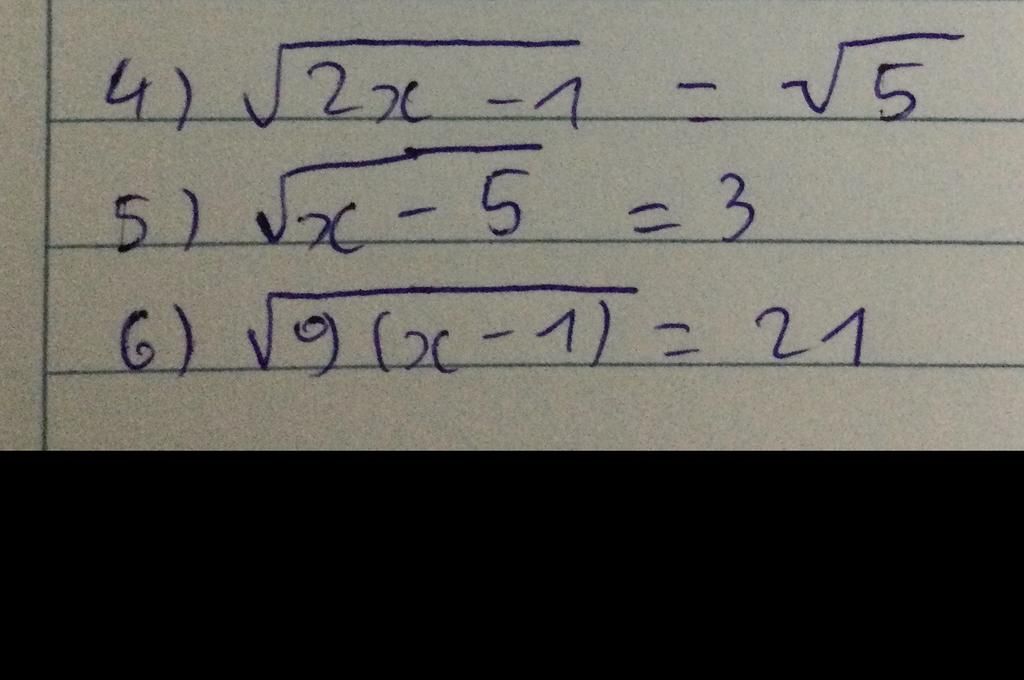 4) √(2x - 1) = √5
5) √(x - 5) = 3
6) √(9(x - 1)) = 21